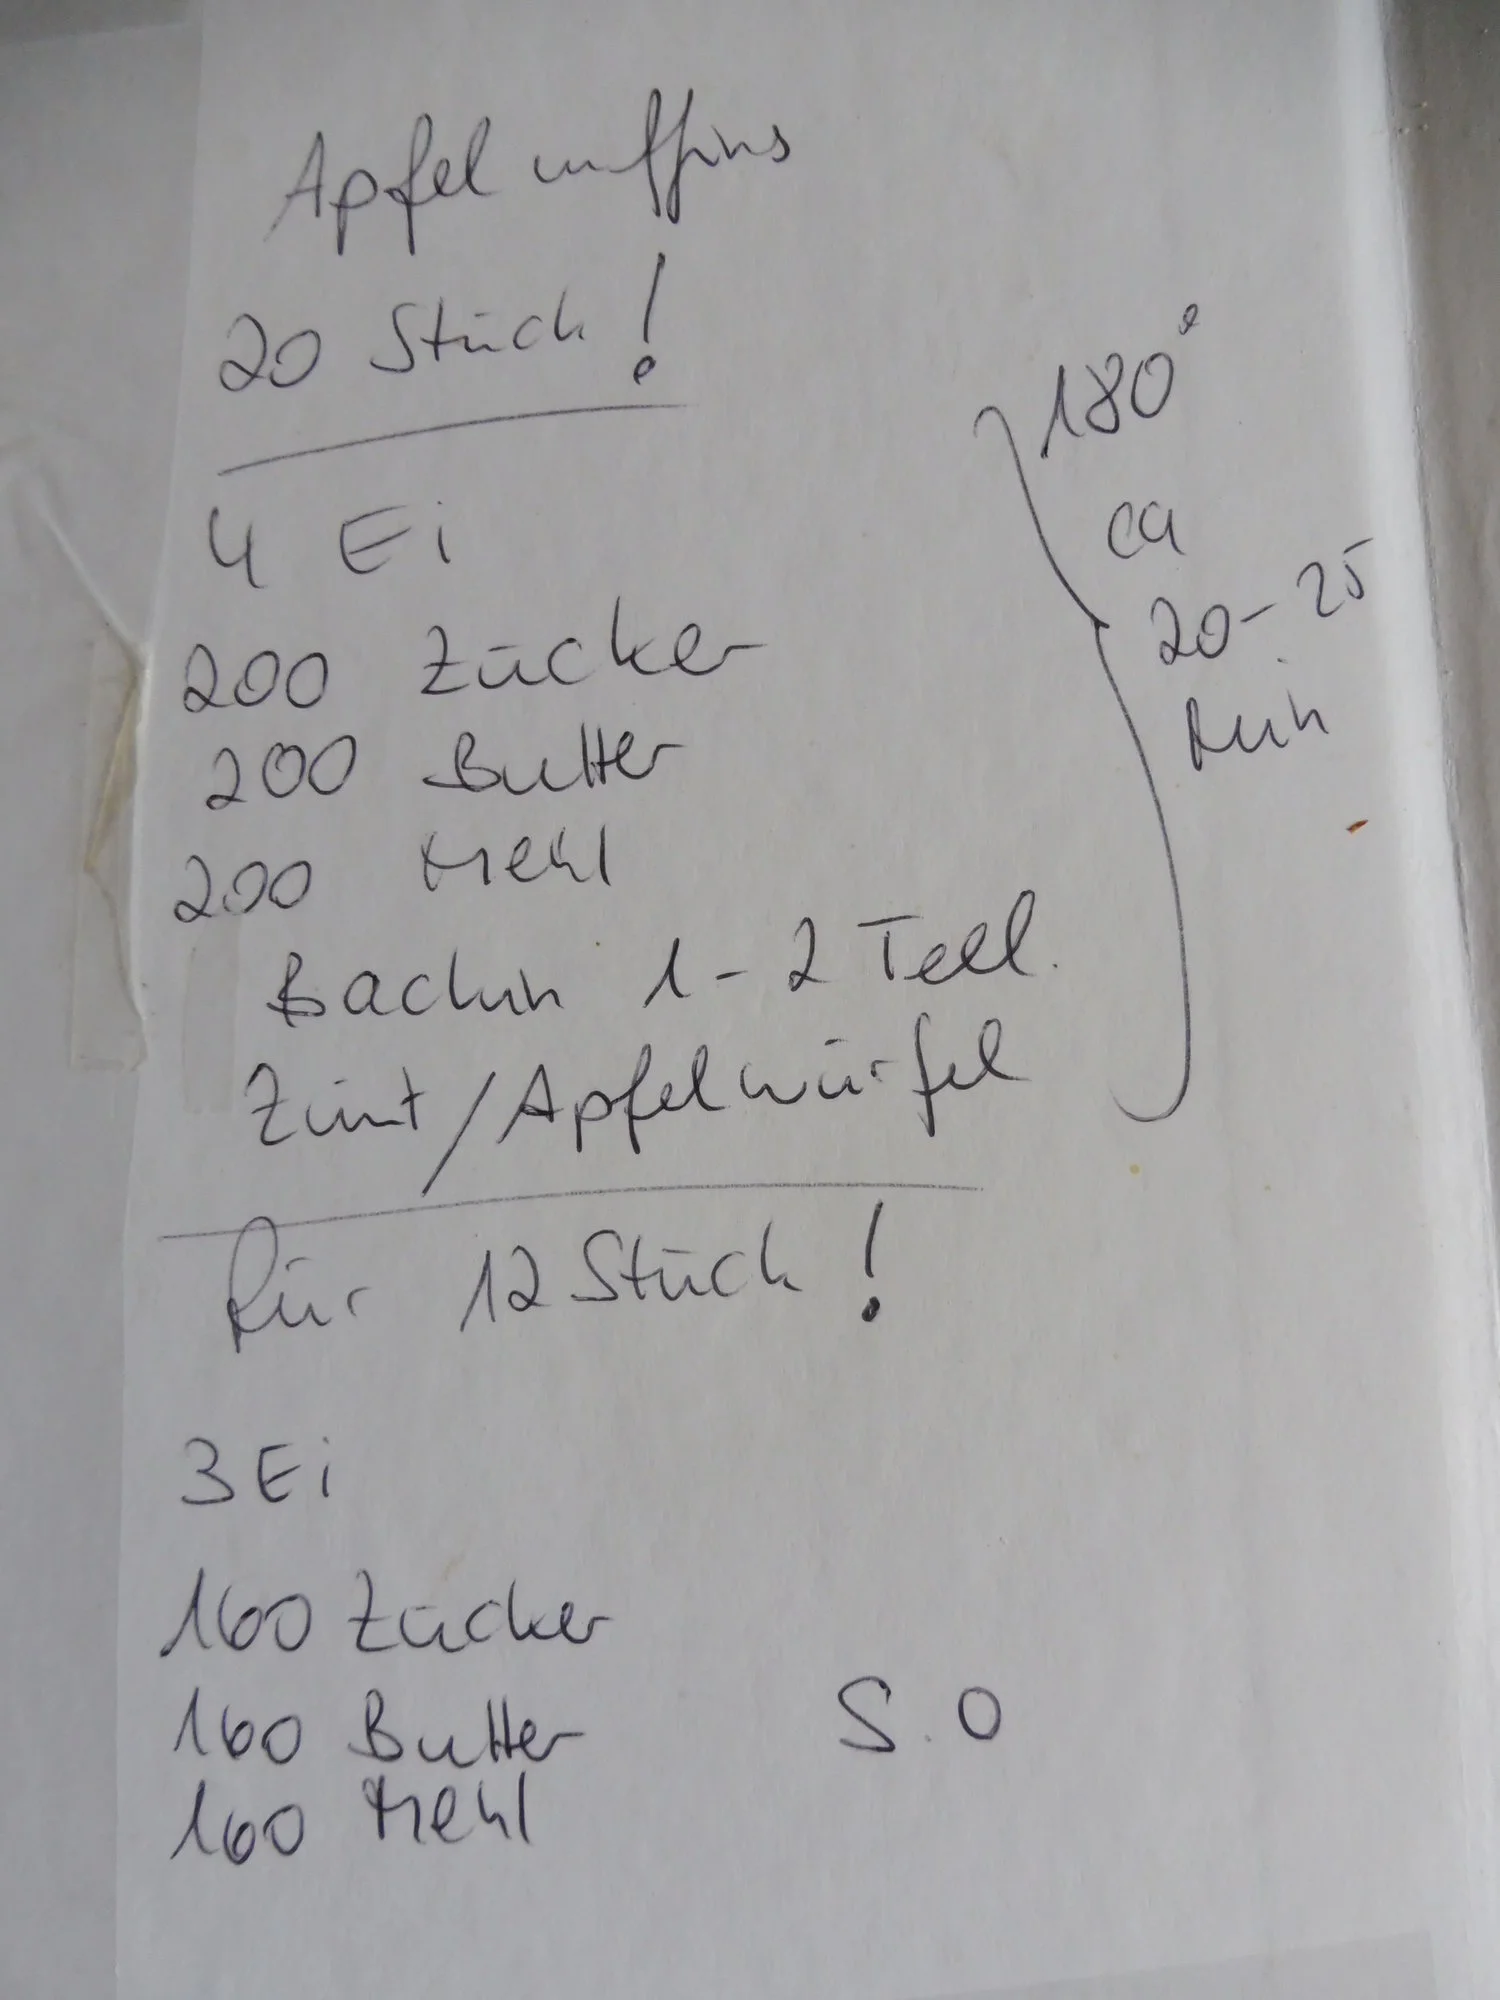 Apfelmuffins
20 Stück!
4 Ei
200 Zucker
200 Butter
200 Mehl
Backin 1-2 Teel.
Zimt/Apfelwürfel
180°
ca
20-25
Min
Für 12 Stück!
3 Ei
160 Zucker
160 Butter
160 Mehl
S.O